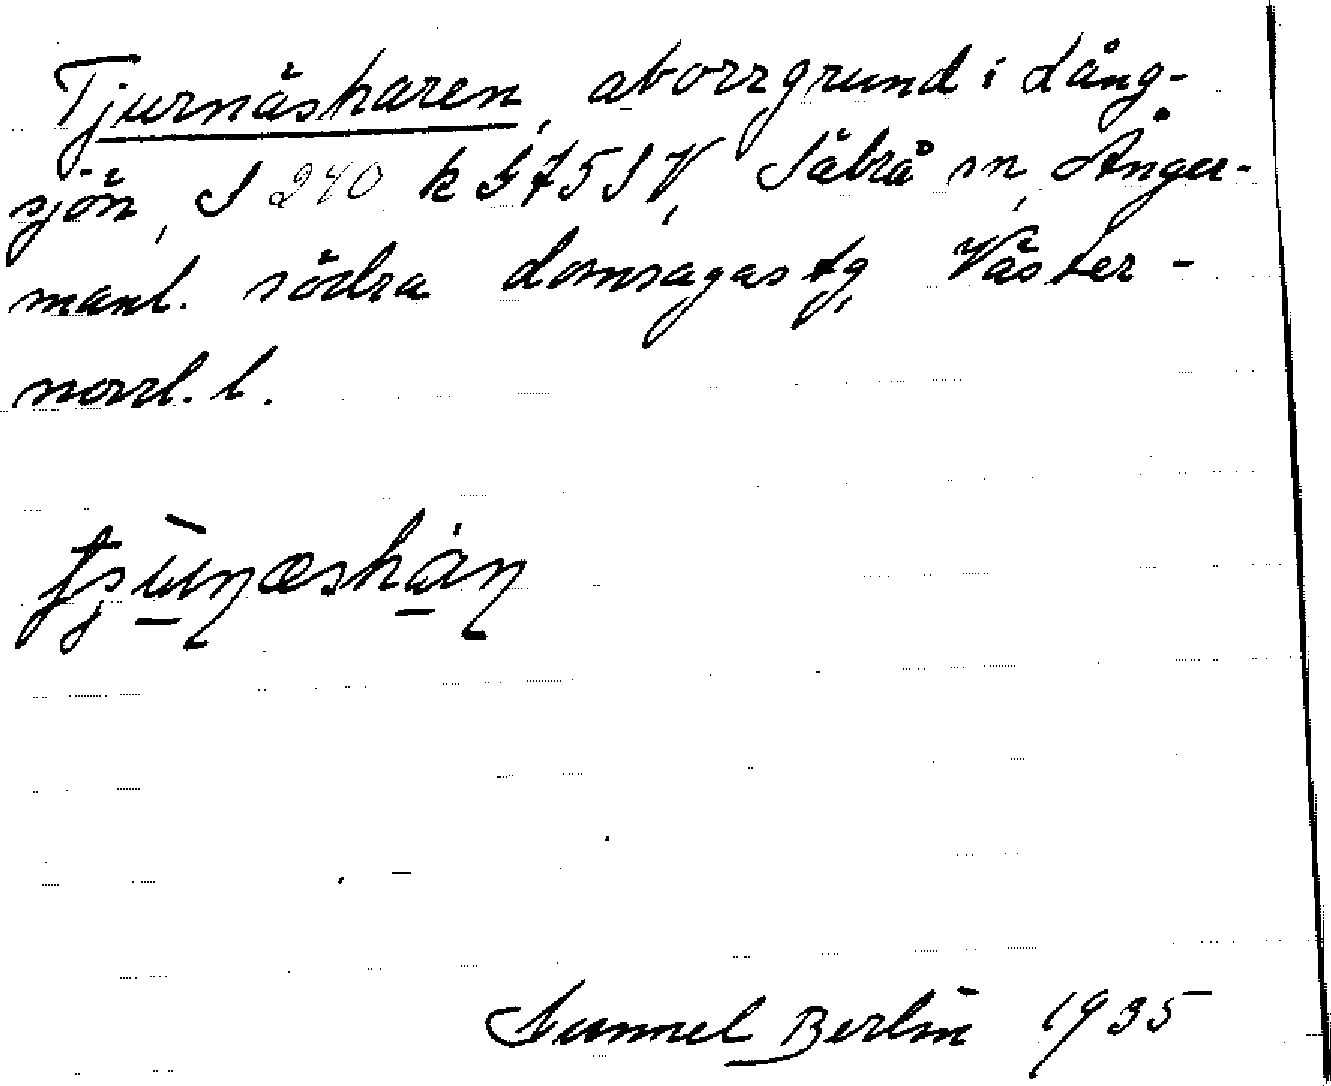 Tjurnäsharen, aborrgrund i Lång-
sjön, S 240 k G 7 5 S V, Säbrå sn, Ånger-
manl. södra domsagas tg, Väster-
norrl. l.
Gunnel Berlin 1935